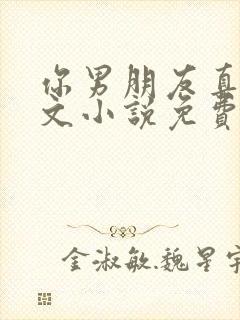 你男朋友真
文小說免費
金淑敏.魏星宇